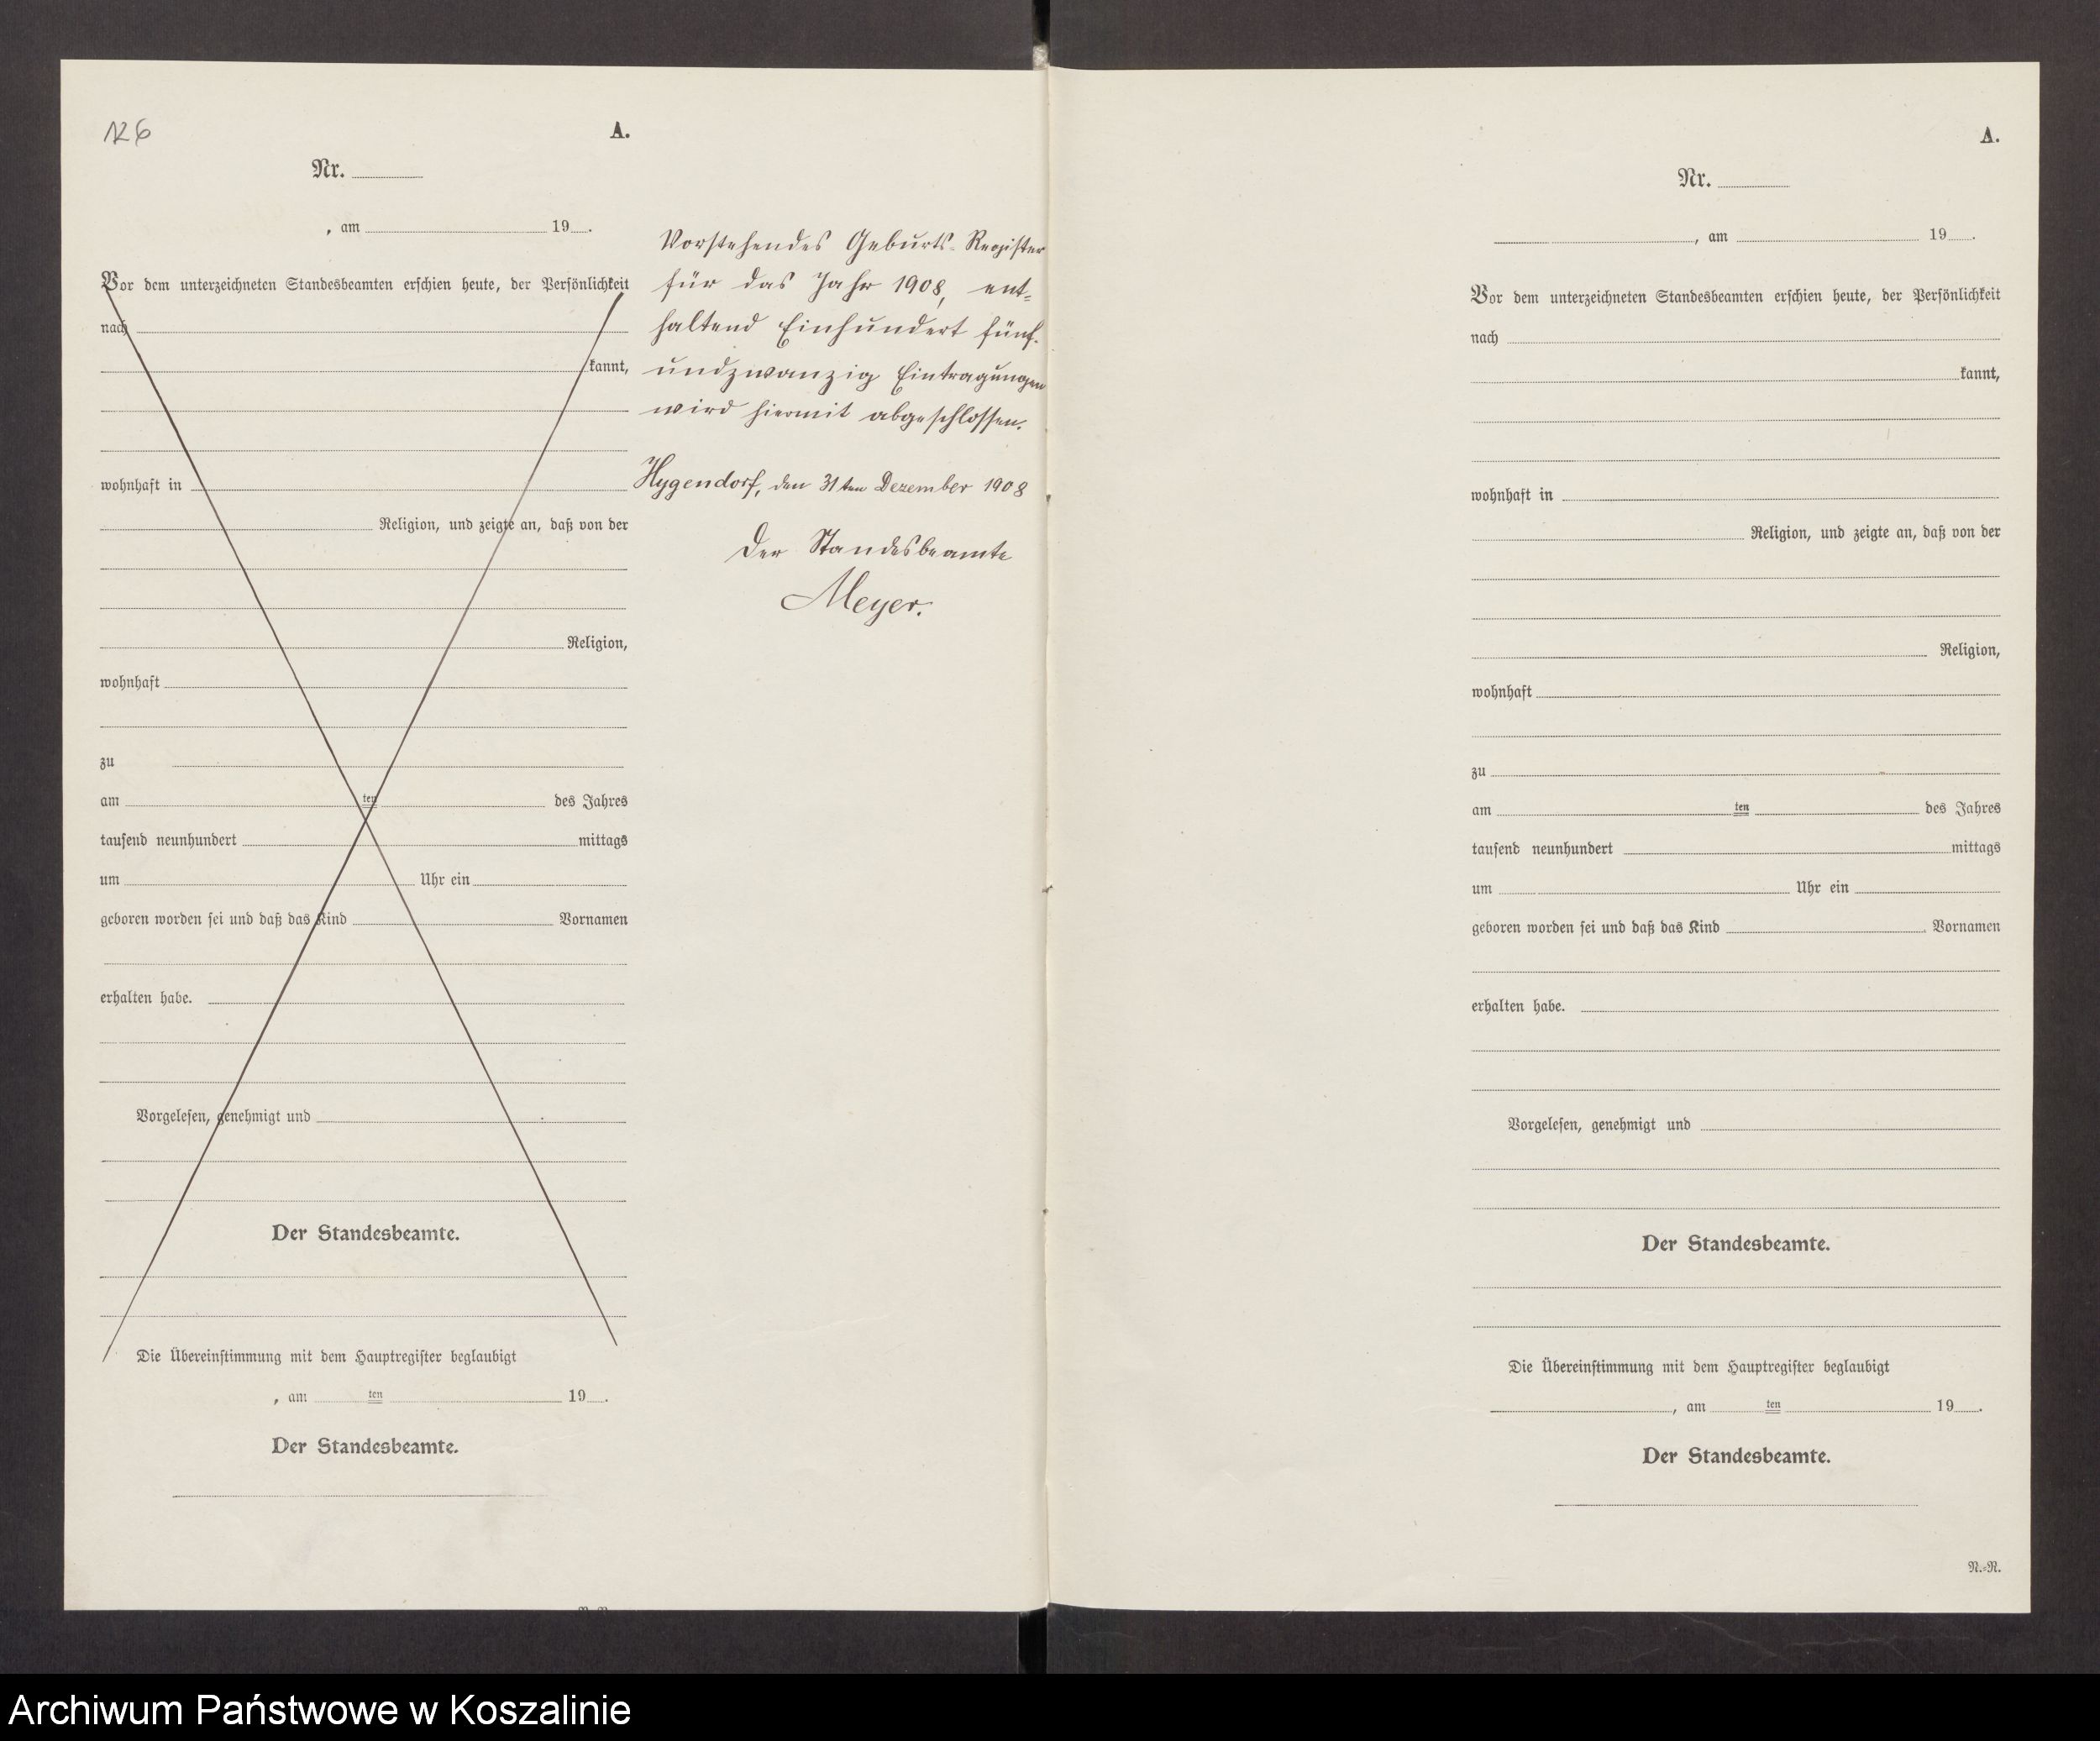 126
A.
Nr.
, am 19 .
Vor dem unterzeichneten Standesbeamten erschien heute, der Persönlichkeit
nach
kannt,
wohnhaft in
Religion, und zeigte an, daß von der
Religion,
wohnhaft
zu
am ten des Jahres
tausend neunhundert mittags
um Uhr ein
geboren worden sei und daß das Kind Vornamen
erhalten habe.
Vorgelesen, genehmigt und
Der Standesbeamte.
Die Übereinstimmung mit dem Hauptregister beglaubigt
, am ten 19 .
Der Standesbeamte.
Vorstehendes Geburts-Register
für das Jahr 1908, ent-
haltend Einhundert fünf-
undzwanzig Eintragungen
wird hiermit abgeschlossen.
Hygendorf, den 31ten Dezember 1908
Der Standesbeamte
Meyer.
A.
Nr.
, am 19 .
Vor dem unterzeichneten Standesbeamten erschien heute, der Persönlichkeit
nach
kannt,
wohnhaft in
Religion, und zeigte an, daß von der
Religion,
wohnhaft
zu
am ten des Jahres
tausend neunhundert mittags
um Uhr ein
geboren worden sei und daß das Kind Vornamen
erhalten habe.
Vorgelesen, genehmigt und
Der Standesbeamte.
Die Übereinstimmung mit dem Hauptregister beglaubigt
, am ten 19 .
Der Standesbeamte.
N.-R.
Archiwum Państwowe w Koszalinie